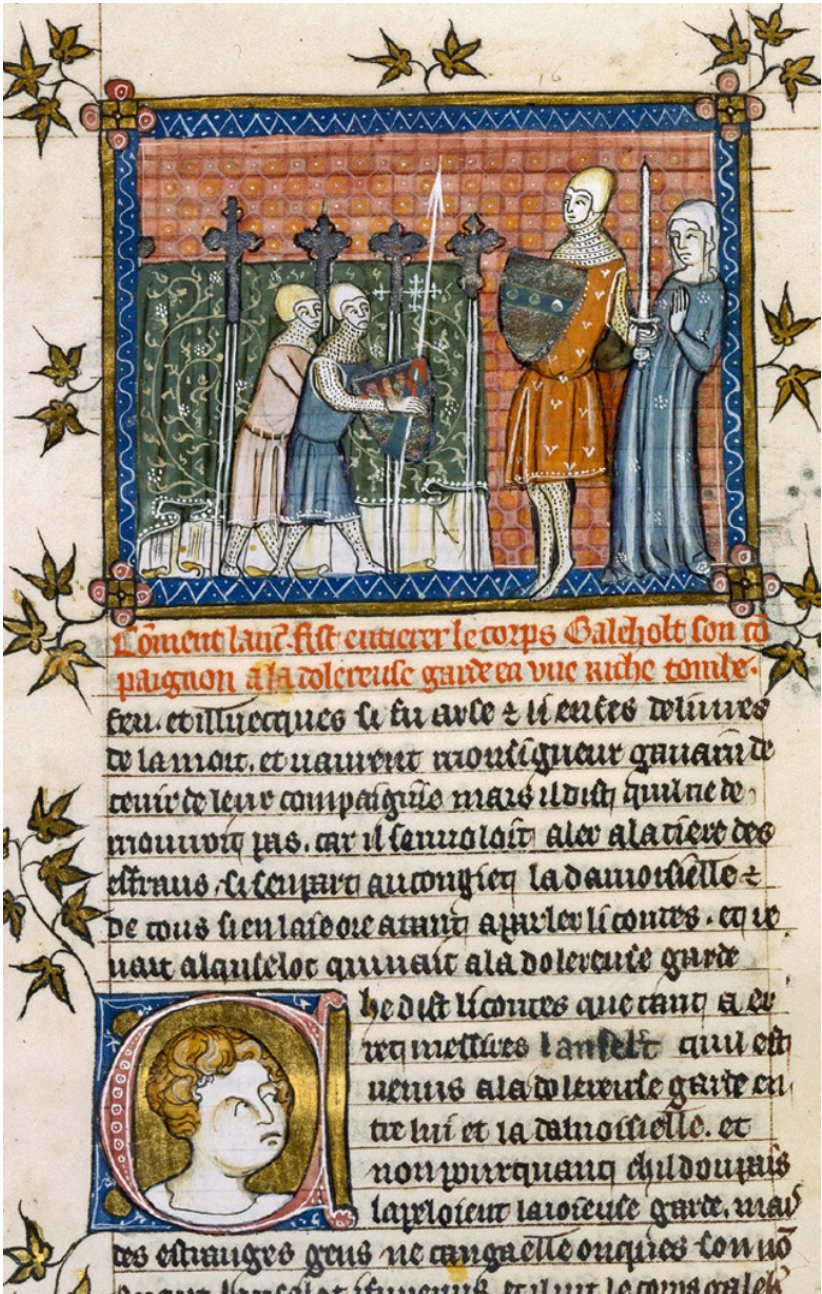 Cōment lanc̄. fist entierer le corps Galeholt son cō
paignon a la dolereuse garde en vne riche tombe.
feu. et illuecques si fu arse ⁊ li enfes deliures
de la mort. et uaurent monsigneur gauain de
tenir de leur compaignie mais il dist quil ne de
mouroit pas. car il sen uoloit aler a la tiere des
estraus. si sen part au congiet la damoisielle ⁊
de tous si en laist ore atant a parler li contes. et re
uait a lanselot qui uait a la dolereuse garde
Che dist li contes que tant a er
ret messires lanselt quil est
uenus a la dolereuse garde en
tre lui et la damoisielle. et
non pourquant chil dou pais
lapeloient la ioieuse garde. mais
des estranges gens ne canga elle onques son nō